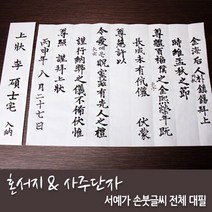 金海后人
時維孟秋之節
尊體百福
長成未有伉儷 伏蒙
尊慈許以
令愛貺室茲有先人之禮
謹行納幣之儀不備伏惟
尊照 謹拜上狀
丙申年 八月二十七日
上狀 李 碩士宅 入納
혼서지 & 사주단자
서예가 손붓글씨 전체 대필